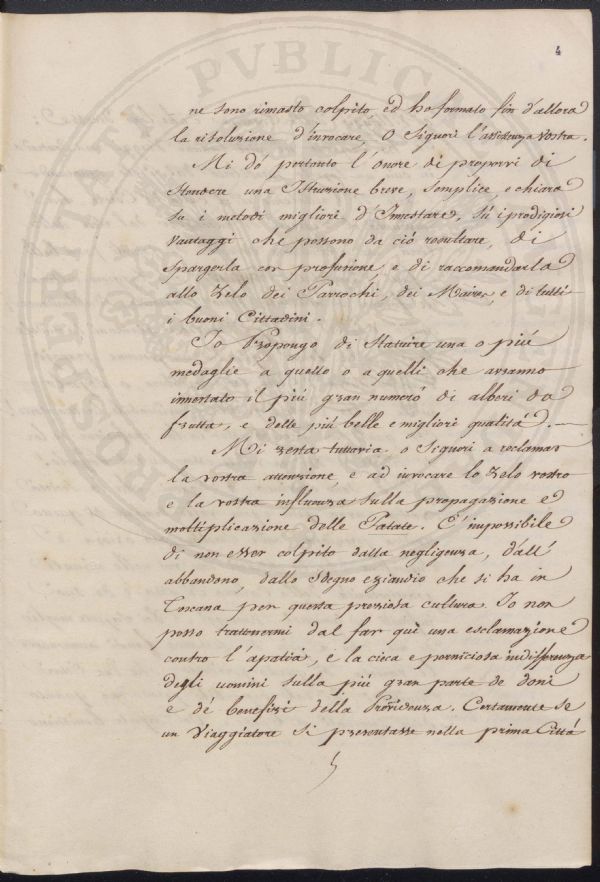 4
ne sono rimasto colpito, ed ho formato fin d'allora
la risoluzione d'invocare, O Siguori l'assistenza vostra.
Mi dò pertanto l'onore di proporvi di
stendere una Istruzione breve, semplice, e chiara
su i metodi migliori d'Innestare, sù i prodigiosi
vantaggi che possono da ciò resultare, di
spargerla con profusione, e di raccomandarla
allo Zelo dei Parrochi, dei Maires, e di tutti
i buoni Cittadini.
Io Propongo di Statuire una o più
medaglie a quello o a quelli che avranno
innestato il più gran numerò di alberi da
frutta, e delle più belle e migliori qualità.
Mi resta tuttavia o Siguori a reclamar
la vostra attenzione, e ad invocare lo zelo vostro
e la vostra influenza sulla propagazione e
moltiplicazione delle Patate. È impossibile
di non esser colpito dalla negligenza, dall'
abbandono, dallo Sdegno eziandio che si ha in
Toscana per questa preziosa cultura. Io non
posso trattenermi dal far quì una esclamazione
contro l'apatia, e la cieca e perniciosa indifferenza
degli uomini sulla più gran parte de doni
e dé benefizi della Providenza. Certamente se
un Viaggiatore si presentasse nella prima Città
PVBLIC
PROSPERITATI